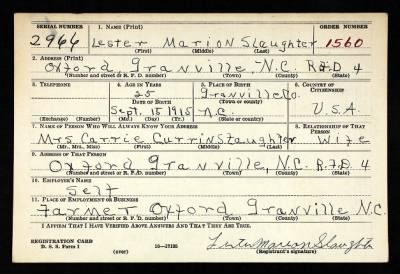 SERIAL NUMBER 1. NAME (Print) ORDER NUMBER
2966 Lester Marion Slaughter 1560
(First) (Middle) (Last)
2. ADDRESS (Print)
Oxford, Granville, N.C. R.F.D 4
(Number and street or R. F. D. number) (Town) (County) (State)
3. TELEPHONE 4. AGE IN YEARS 5. PLACE OF BIRTH 6. COUNTRY OF CITIZENSHIP
25 Granville Co.
DATE OF BIRTH (Town or county)
Sept. 15 1915 N.C. U.S.A.
(Exchange) (Number) (Mo.) (Day) (Yr.) (State or country)
7. NAME OF PERSON WHO WILL ALWAYS KNOW YOUR ADDRESS 8. RELATIONSHIP OF THAT PERSON
Mrs Carrie Currin Slaughter Wife
(Mr., Mrs., Miss) (First) (Middle) (Last)
9. ADDRESS OF THAT PERSON
Oxford Granville, N.C. R.F.D. 4
(Number and street or R. F. D. number) (Town) (County) (State)
10. EMPLOYER'S NAME
Self
11. PLACE OF EMPLOYMENT OR BUSINESS
Farmer Oxford Granville N.C.
(Number and street or R. F. D. number) (Town) (County) (State)
I AFFIRM THAT I HAVE VERIFIED ABOVE ANSWERS AND THAT THEY ARE TRUE.
REGISTRATION CARD
D. S. S. Form 1 16—17105 Lester Marion Slaughter
(over) (Registrant's signature)